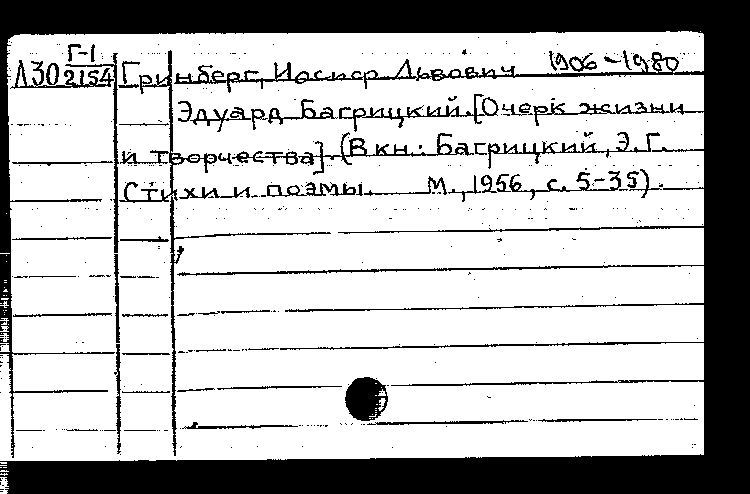 Г-1
Л30 2154 Гринберг, Иосиф Львович 1906-1980
Эдуард Багрицкий. [Очерк жизни
и творчества]. (В кн.: Багрицкий, Э. Г.
Стихи и поэмы. М., 1956, с. 5-35).